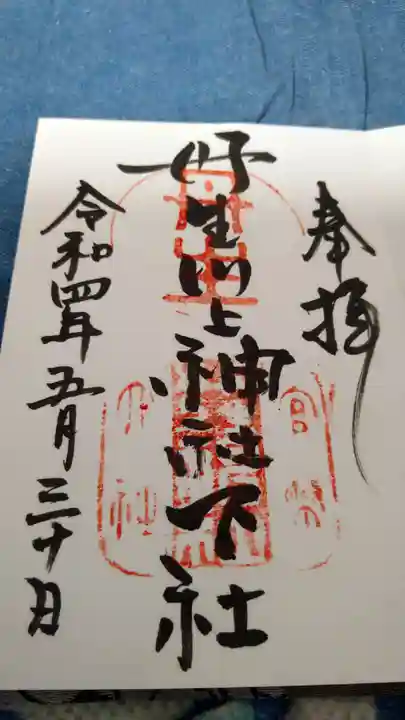 奉拝
丹生川上神社下社
令和四年五月三十日